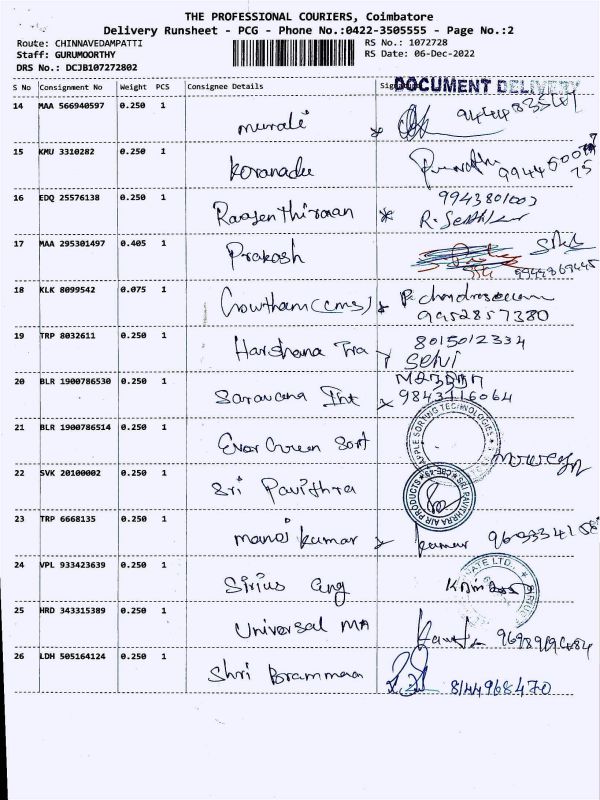 THE PROFESSIONAL COURIERS, Coimbatore
Delivery Runsheet - PCG - Phone No.:0422-3505555 - Page No.:2
Route: CHINNAVEDAMPATTI RS No.: 1072728
Staff: GURUMOORTHY RS Date: 06-Dec-2022
DRS No.: DCJB107272802
DOCUMENT DELIVERY
S No Consignment No Weight PCS Consignee Details
14 MAA 566940597 0.250 1
murali
15 KMU 3310282 0.250 1
Koranadu
16 EDQ 25576138 0.250 1 9943801003
17 MAA 295301497 0.405 1
Prakash
18 KLK 8099542 0.075 1
Gowtham (cms)
9952857380
19 TRP 8032611 0.250 1 8015012334
Harshana Tra Selvi
20 BLR 1900786530 0.250 1
Saravana Int 9843116064
21 BLR 1900786514 0.250 1 APPLE SORTING TECHNOLOGIES
Ever Green Sort
22 SVK 20100002 0.250 1 SRI PAVITHRRA AIR PRODUCTS
Sri Pavithra
23 TRP 6668135 0.250 1
manoj kumar kumar
24 VPL 933423639 0.250 1
Sirius Eng
25 HRD 343315389 0.250 1
Universal MA
26 LDH 505164124 0.250 1
Shri Brammaa 8144968470